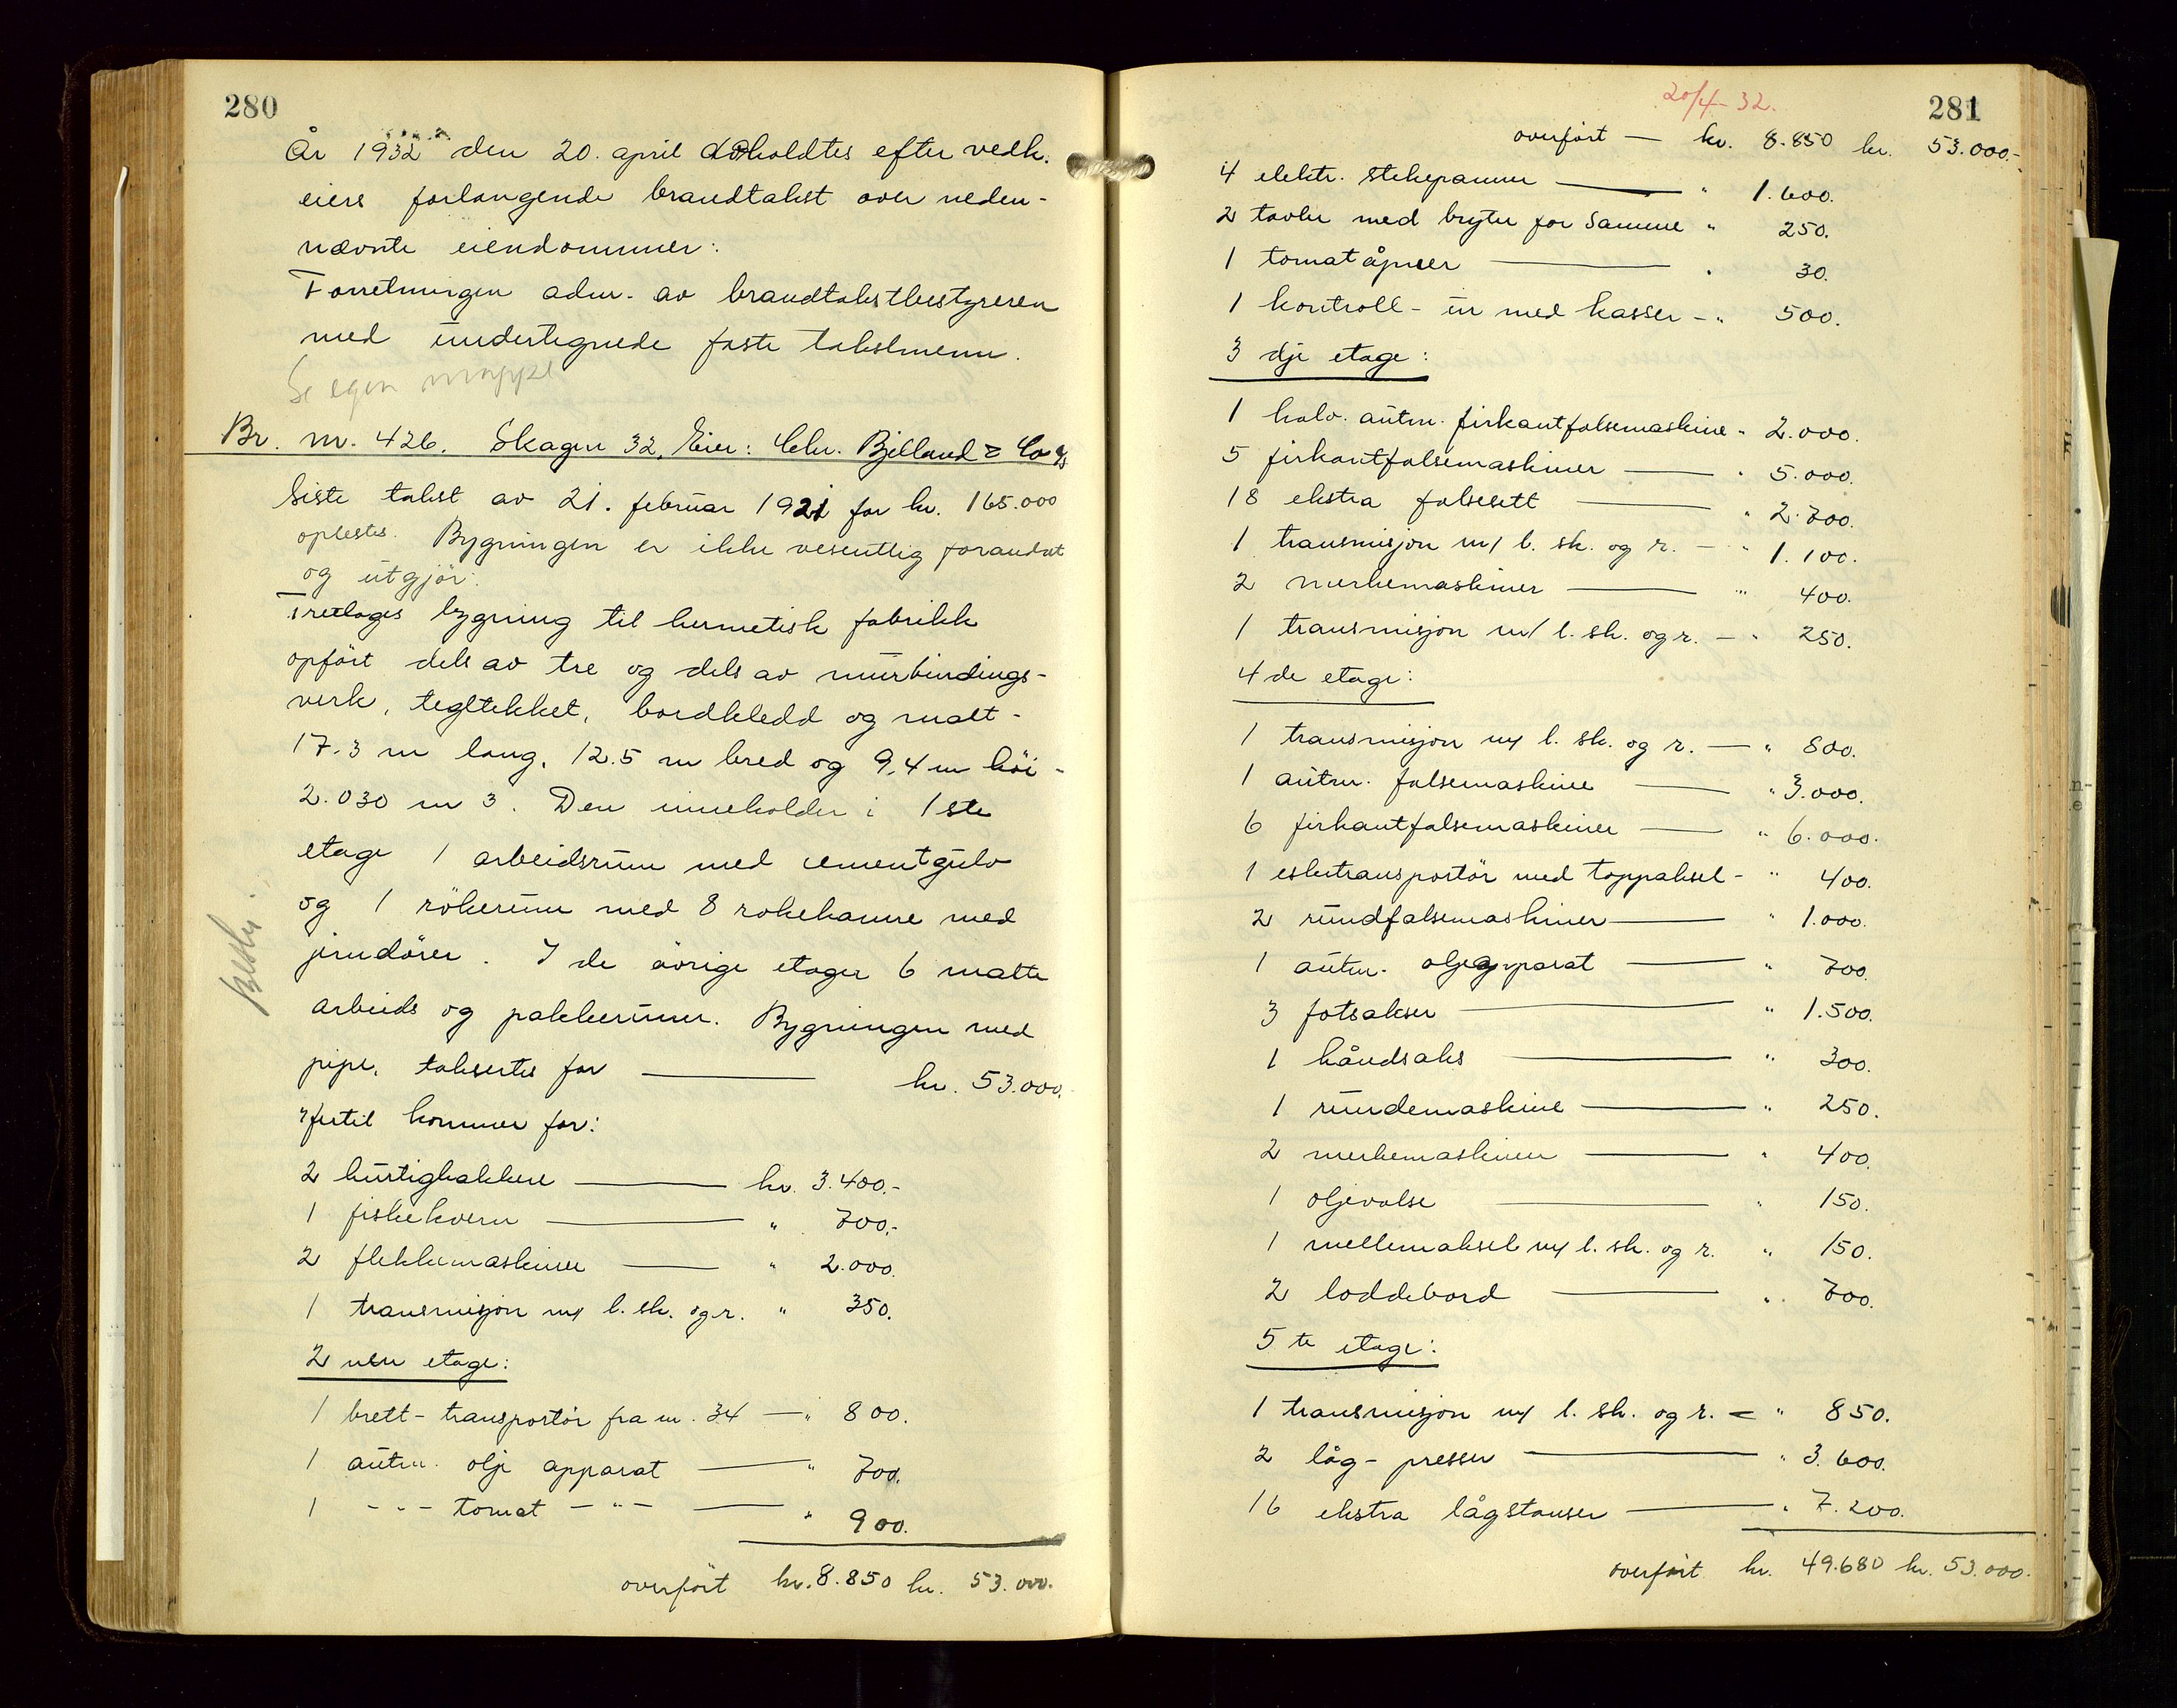 280
År 1932 den 20. april avholdtes efter vedk.
eiers forlangende brandtakst over neden-
nævnte eiendommer:
Forretningen adm. av brandtakstbestyreren
med undertegnede faste takstmenn.
Se egen mappe
Br. nr. 426. Skagen 32, Eier: Chr. Bjelland & Co A/S
Siste takst av 21. februar 1921 for kr. 165.000
oplestes. Bygningen er ikke vesentlig forandret
og utgjör:
Treetages bygning til hermetisk fabrikk
opfört dels av tre og dels av murbindings-
verk, tegltekket, bordkledd og malt -
17.3 m lang, 12.5 m bred og 9,4 m höi -
2.030 m 3. Den inneholder i 1ste
etage 1 arbeidsrum med cementgulv
og 1 rökerum med 8 rokekamre med
jerndörer. I de övrige etager 6 malte
arbeids og pakkerumer. Bygningen med
pipe, takseres for — kr. 53.000.
Hertil kommer for:
2 hurtighakkere — kr. 3.400.-
1 fiskekvern — " 700.-
2 flekkemaskiner — " 2.000.
1 transmisjon m/ l. sk. og r. " 350.
2 nen etage:
1 brett-transportör fra nr. 34 — " 800.
1 autm. olje apparat — " 700.
1 - " - tomat - " - — " 900.
overfört kr. 8.850 kr. 53.000.
20/4-32.
281
overfört — kr. 8.850 kr. 53.000.-
4 elektr. stekepanner — " 1.600.
2 tavler med bryter for samme " 250.
1 tomatåpner — " 30.
1 kontroll-ur med kasser - " 500.
3 dje etage:
1 halv. autm. firkantfalsemaskine " 2.000.
5 firkantfalsemaskiner — " 5.000.
18 ekstra falsesett — " 2.700.
1 transmisjon m/ l. sk. og r. — " 1.100.
2 merkemaskiner — " 400.
1 transmisjon m/ l. sk. og r. — " 250.
4 de etage:
1 transmisjon m/ l. sk. og r. — " 800.
1 autm. falsemaskine — " 3.000.
6 firkantfalsemaskiner — " 6.000.
1 esketransportör med toppaksel - " 400.
2 rundfalsemaskiner — " 1.000.
1 autm. oljeapparat — " 700.
3 fotsakser — " 1.500.
1 håndsaks — " 300.
1 rundemaskine — " 250.
2 merkemaskiner — " 400.
1 oljevalse — " 150.
1 mellemaksel m/ l. sk. og r. " 150.
2 loddebord — " 700.
5 te etage:
1 transmisjon m/ l. sk. og r. - " 850.
2 låg-presser — " 3.600.
16 ekstra lågstanser — " 7.200.
overfört kr. 49.680 kr. 53.000.